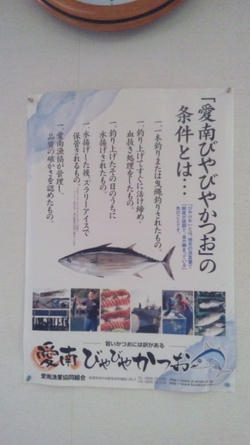 「愛南びやびやかつお」の
条件とは…
一、一本釣りまたは曳縄釣りされたもの。
一、釣り上げてすぐに活け締め、
血抜き処理をしたもの。
一、釣り上げたその日のうちに
水揚げされたもの。
一、水揚げした後、スラリーアイスで
保管されるもの。
一、愛南漁協が管理し、
品質の確かさを認めたもの。
旨いかつおには訳がある
愛南びやびやかつお
愛南漁業協同組合